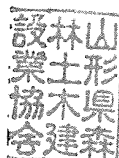 山形県森
林土木建
設業協会